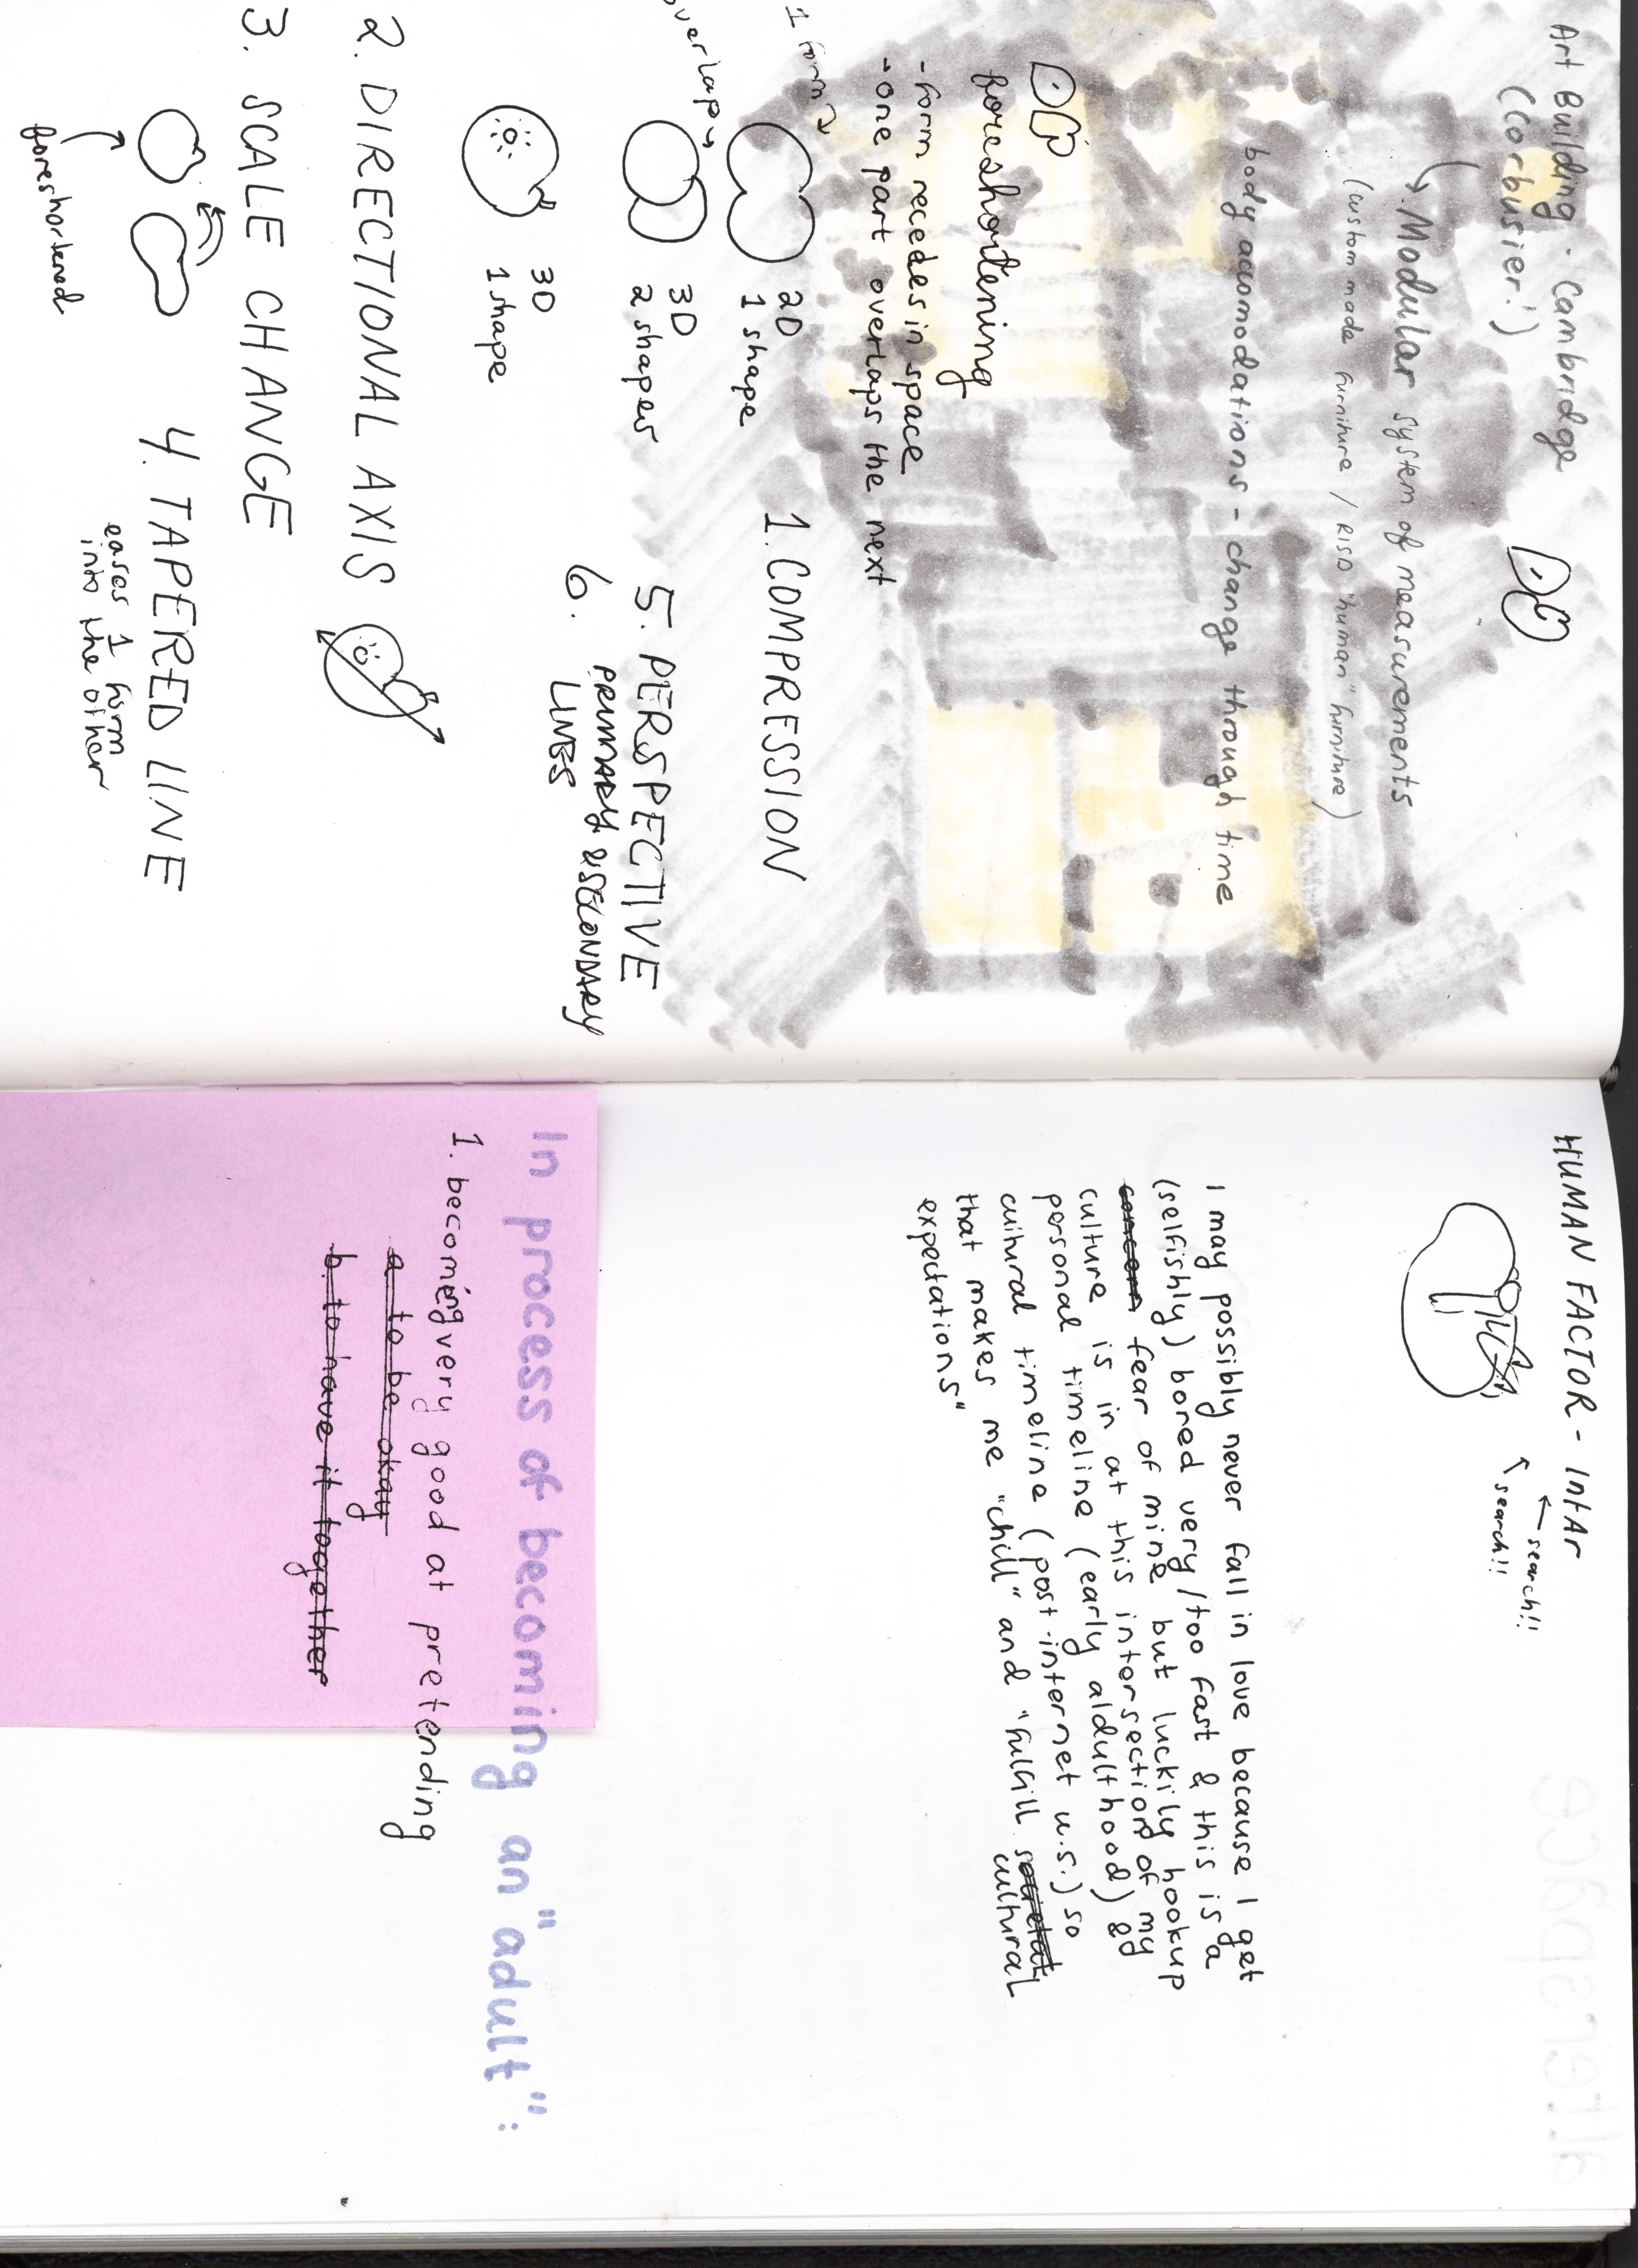 Art Building - Cambridge
(Corbusier!)
Modular system of measurements
(custom made furniture / RISD "human" furniture)
body accomodations - change through time
foreshortening
- form recedes in space
- one part overlaps the next
1 form
overlap
2D
1 shape
3D
2 shapes
3D
1 shape
1. COMPRESSION
2. DIRECTIONAL AXIS
3. SCALE CHANGE
foreshortened
4. TAPERED LINE
eases 1 form
into the other
5. PERSPECTIVE
6. PRIMARY & SECONDARY
LINES
HUMAN FACTOR - IntAr
search!!
search!!
I may possibly never fall in love because I get
(selfishly) bored very/too fast & this is a
fear of mine but luckily hookup
culture is in at this intersection of my
personal timeline (early aldulthood) &
cultural timeline (post-internet u.s.) so
that makes me "chill" and "fulfill societal cultural
expectations"
In process of becoming an "adult":
1. becoming very good at pretending
a to be okay
b. to have it together